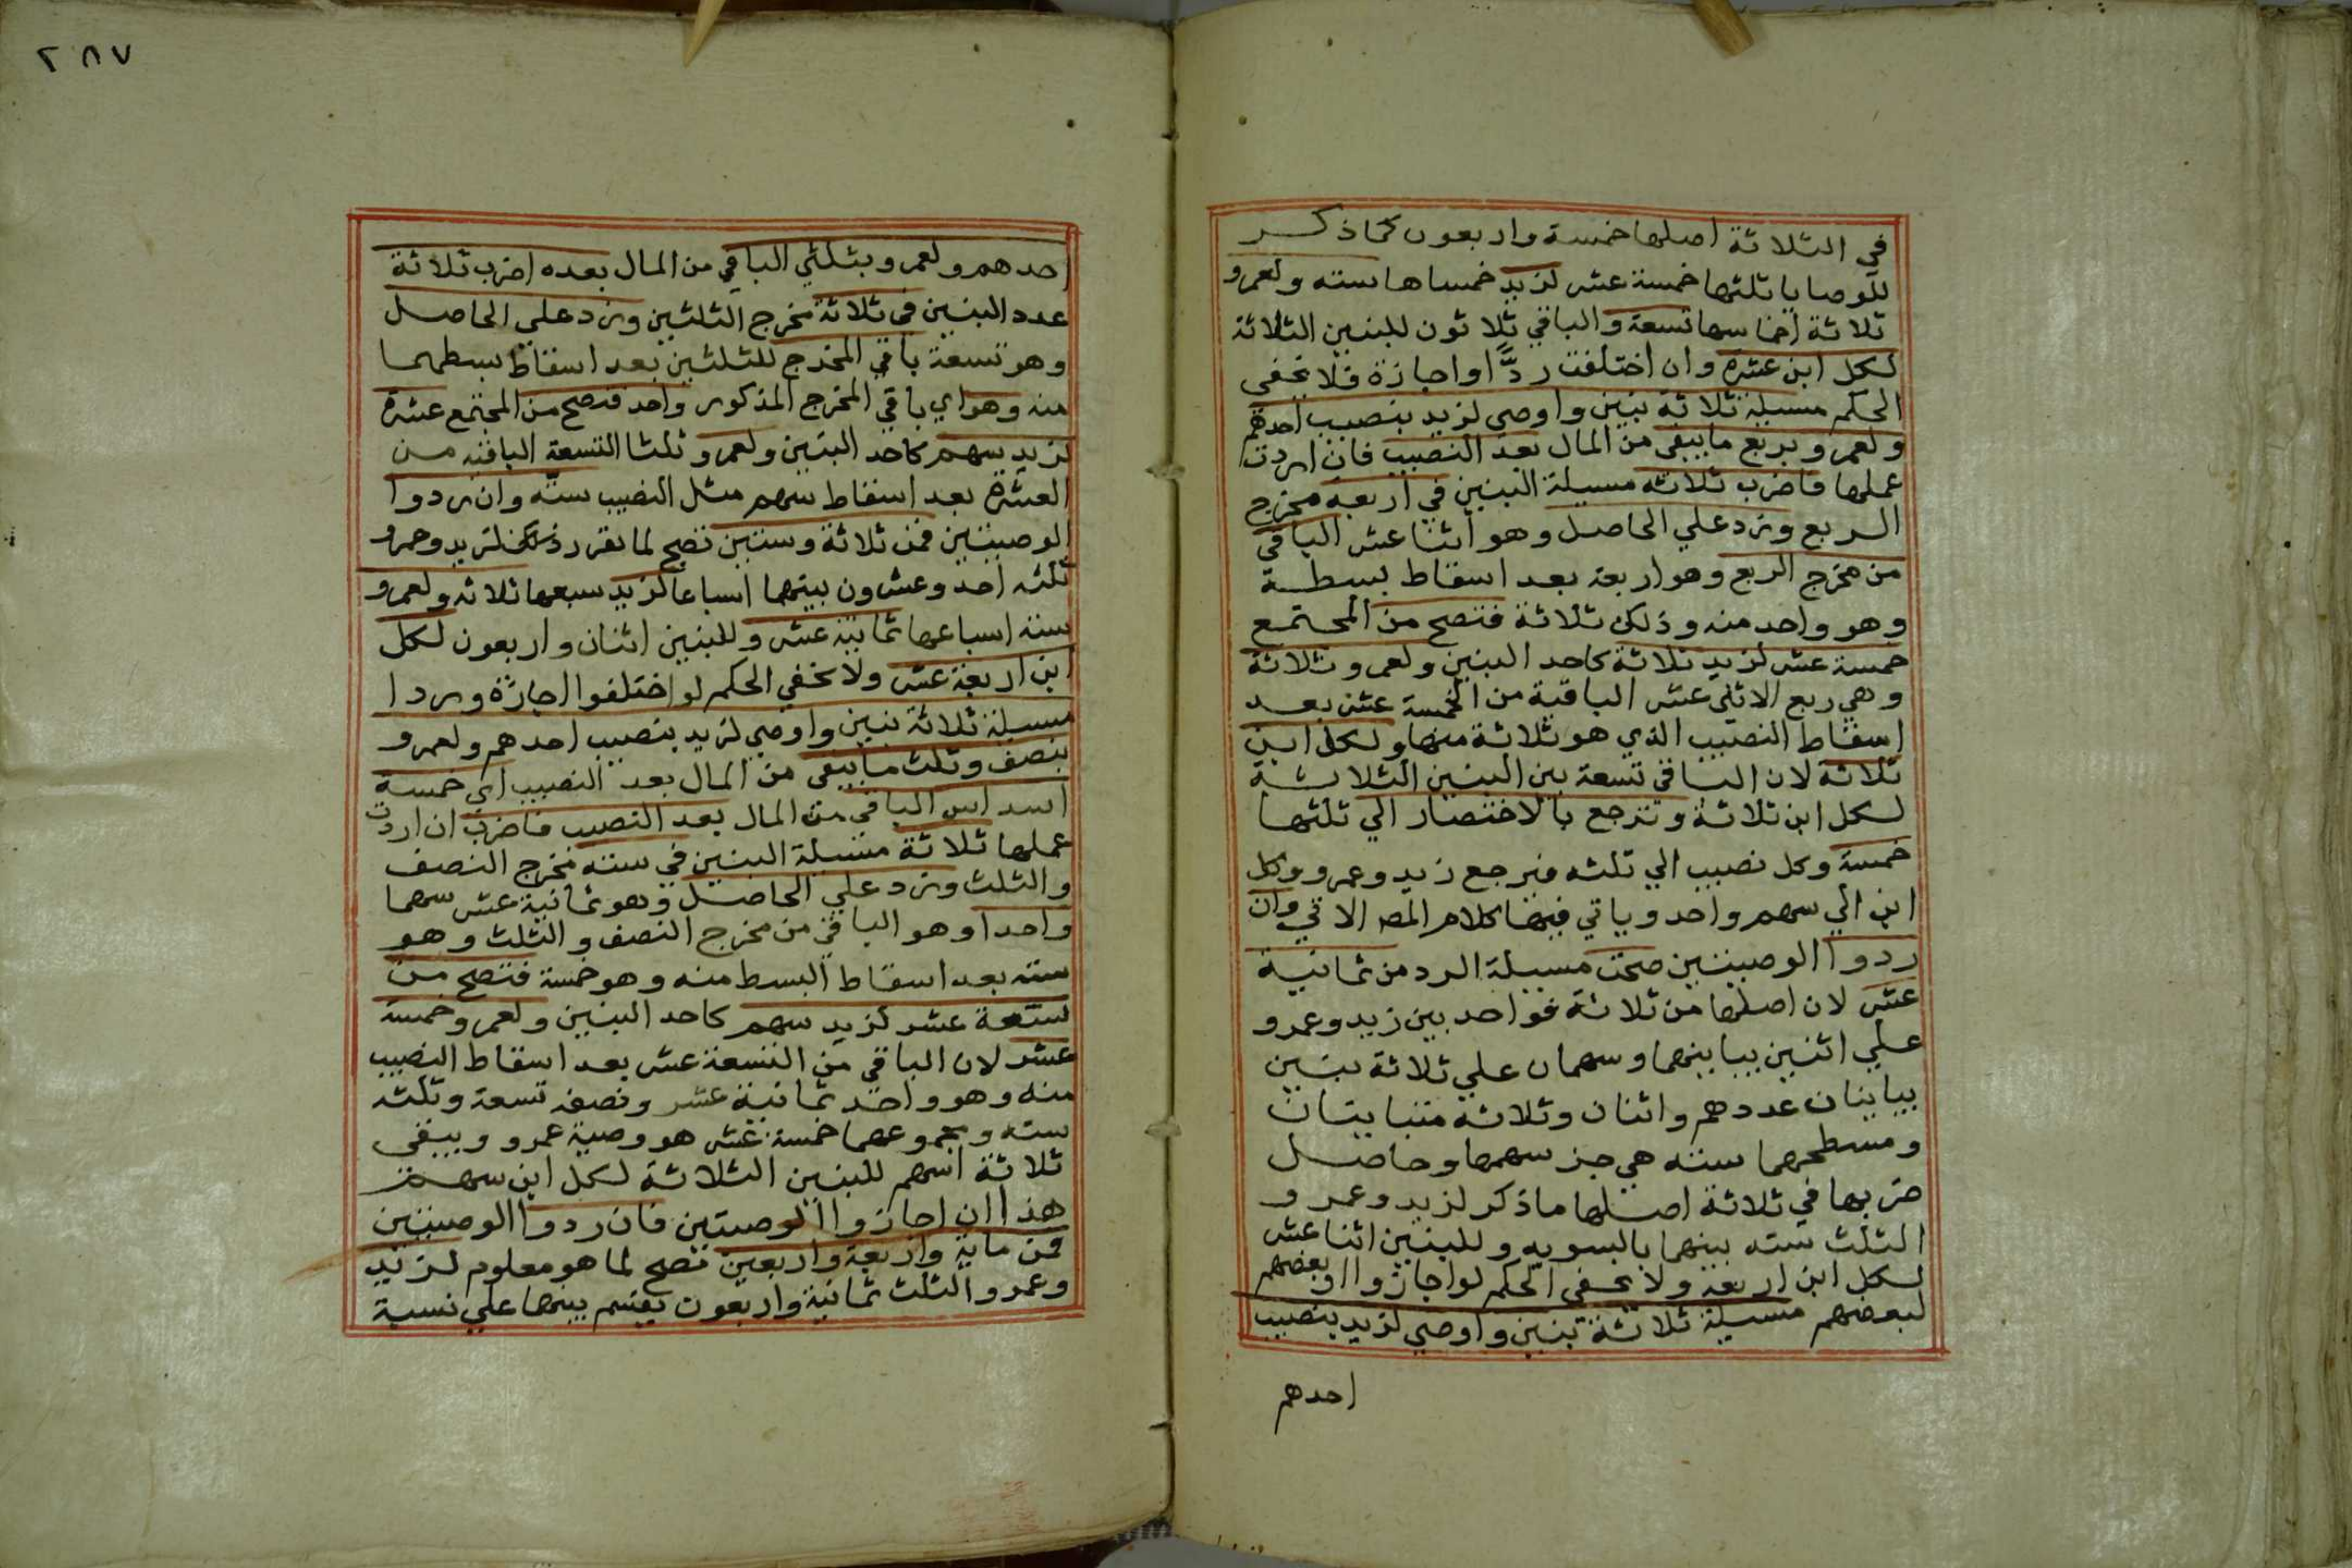 في الثلاثة اصلها خمسة واربعون كما ذكر
للوصايا ثلثها خمسة عشر لزيد خمساها سته ولعمرو
ثلاثة اخماسها تسعة والباقي ثلاثون للبنين الثلاثة
لكل ابن عشرة وان اختلفت ردًّا او اجازة فلا يخفى
الحكم مسيلة ثلاثة بنين واوصى لزيد بنصيب احدهم
ولعمرو بربع ما يبقى من المال بعد النصيب فان اردت
عملها فاضرب ثلاثه مسيلة البنين في اربعه مخرج
الربع وزد علي الحاصل وهو اثنا عشر الباقي
من مخرج الربع وهو اربعة بعد اسقاط بسطة
وهو واحد منه وذلك ثلاثة فتصح من المجتمع
خمسة عشر لزيد ثلاثة كاحد البنين ولعمرو ثلاثة
وهي ربع الاثني عشر الباقية من الخمسة عشر بعد
اسقاط النصيب الذي هو ثلاثة منها ولكل ابن
ثلاثة لان الباقي تسعة بين البنين الثلاثة
لكل ابن ثلاثة وترجع بالاختصار الي ثلثها
خمسة وكل نصيب الي ثلثه فيرجع زيد وعمرو وكل
ابن الي سهم واحد وياتي فيها كلام المص الاتي وان
ردوا الوصيتين صحت مسيلة الرد من ثمانية
عشر لان اصلها من ثلاثة فواحد بين زيد وعمرو
علي اثنين يباينهما وسهمان علي ثلاثة بنين
يباينان عددهم واثنان وثلاثه متباينان
ومسطحهما سته هي جز سهمها وحاصل
ضربها في ثلاثة اصلها ما ذكر لزيد وعمرو
الثلث سته بينهما بالسويه وللبنين اثنا عشر
لكل ابن اربعة ولا يخفى الحكم لو اجازوا او بعضهم
لبعضهم مسيلة ثلاثة بنين واوصي لزيد بنصيب
احدهم
٢٨٧
احدهم ولعمرو بثلثي الباقي من المال بعده اضرب ثلاثة
عدد البنين في ثلاثة مخرج الثلثين وزد علي الحاصل
وهو تسعة باقي المخرج للثلثين بعد اسقاط بسطهما
منه وهو اي باقي المخرج المذكور واحد فتصح من المجتمع عشرة
لزيد سهم كاحد البنين ولعمرو ثلثا التسعة الباقيه من
العشرة بعد اسقاط سهم مثل النصيب سته وان ردوا
الوصيتين فمن ثلاثة وستين تصح لما تقرر ذلك لزيد وعمرو
ثلثه احد وعشرون بينهما اسباعا لزيد سبعها ثلاثه ولعمرو
سته اسباعها ثمانية عشر وللبنين اثنان واربعون لكل
ابن اربعة عشر ولا يخفي الحكم لو اختلفوا اجازة وردا
مسيلة ثلاثة بنين واوصي لزيد بنصيب احدهم ولعمرو
بنصف وثلث ما يبقى من المال بعد النصيب اي خمسة
اسداس الباقي من المال بعد النصيب فاضرب ان اردت
عملها ثلاثة مسيلة البنين في سته مخرج النصف
والثلث وزد علي الحاصل وهو ثمانية عشر سهما
واحدا وهو الباقي من مخرج النصف والثلث وهو
سته بعد اسقاط البسط منه وهو خمسة فتصح من
تسعة عشر لزيد سهم كاحد البنين ولعمرو خمسة
عشر لان الباقي من التسعة عشر بعد اسقاط النصيب
منه وهو واحد ثمانية عشر ونصفه تسعة وثلثه
سته ومجموعهما خمسة عشر هو وصية عمرو ويبقى
ثلاثة اسهم للبنين الثلاثة لكل ابن سهم
هذا ان اجازوا الوصيتين فان ردوا الوصيتين
فمن ماية واربعة واربعين تصح لما هو معلوم لزيد
وعمرو الثلث ثمانية واربعون يقتسم بينهما علي نسبة